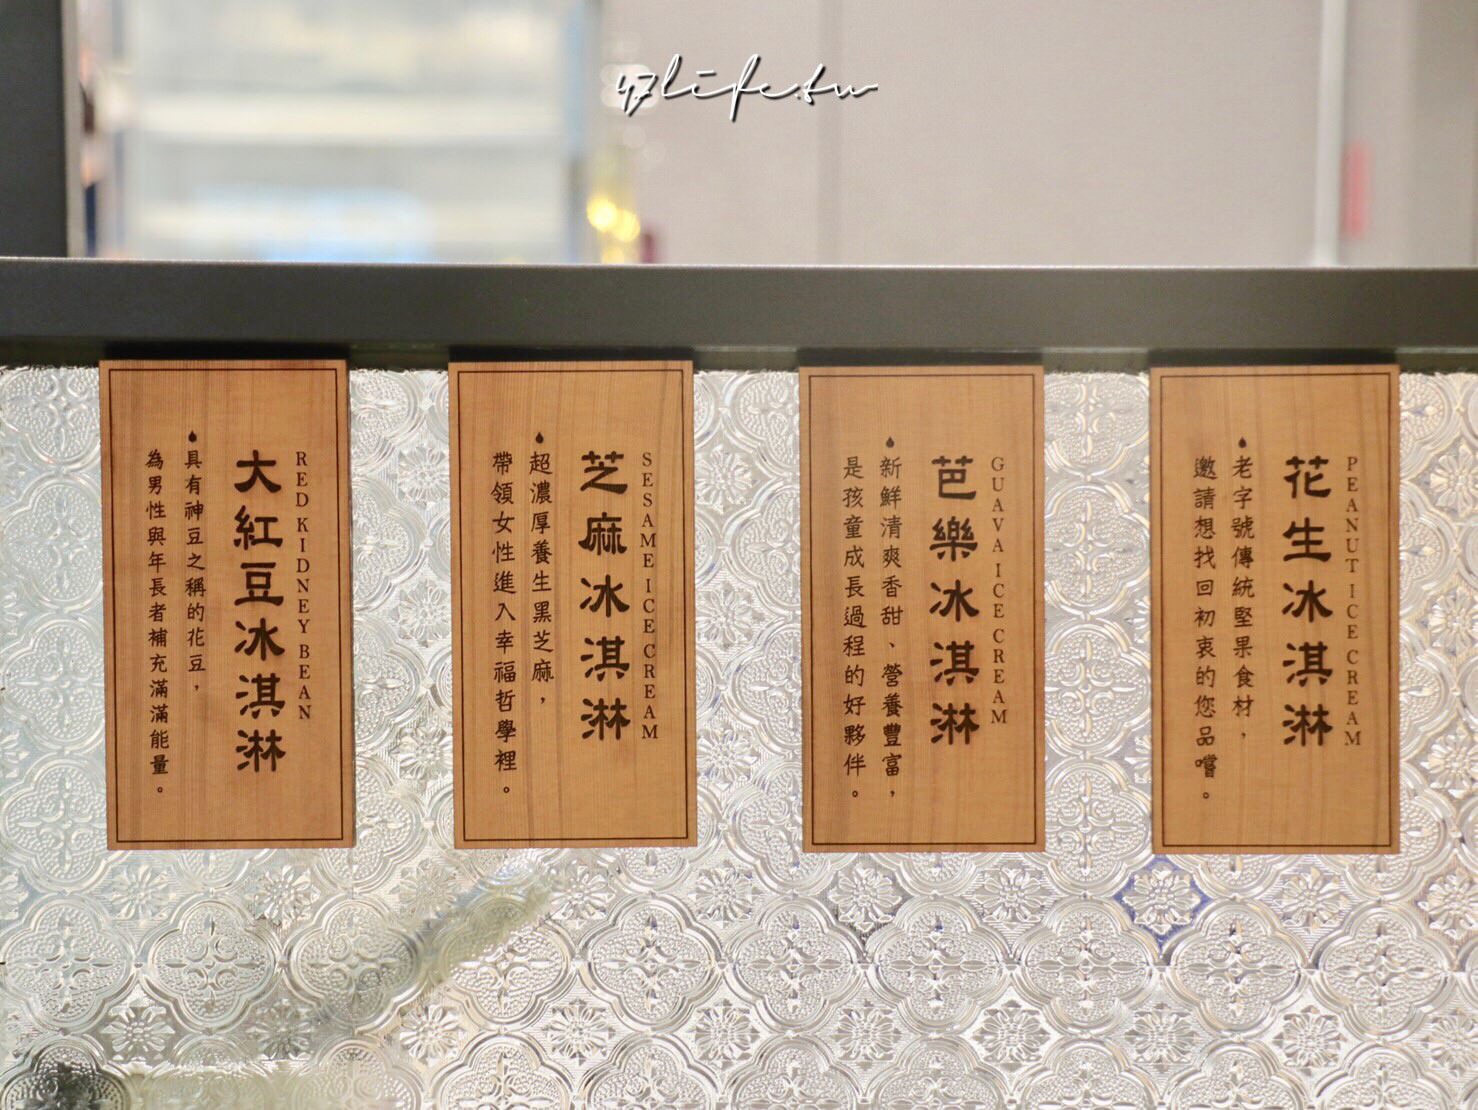 47life.tw
RED KIDNEY BEAN
大紅豆冰淇淋
具有神豆之稱的花豆，
為男性與年長者補充滿滿能量。
SESAME ICE CREAM
芝麻冰淇淋
超濃厚養生黑芝麻，
帶領女性進入幸福哲學裡。
GUAVA ICE CREAM
芭樂冰淇淋
新鮮清爽香甜、營養豐富，
是孩童成長過程的好夥伴。
PEANUT ICE CREAM
花生冰淇淋
老字號傳統堅果食材，
邀請想找回初衷的您品嚐。